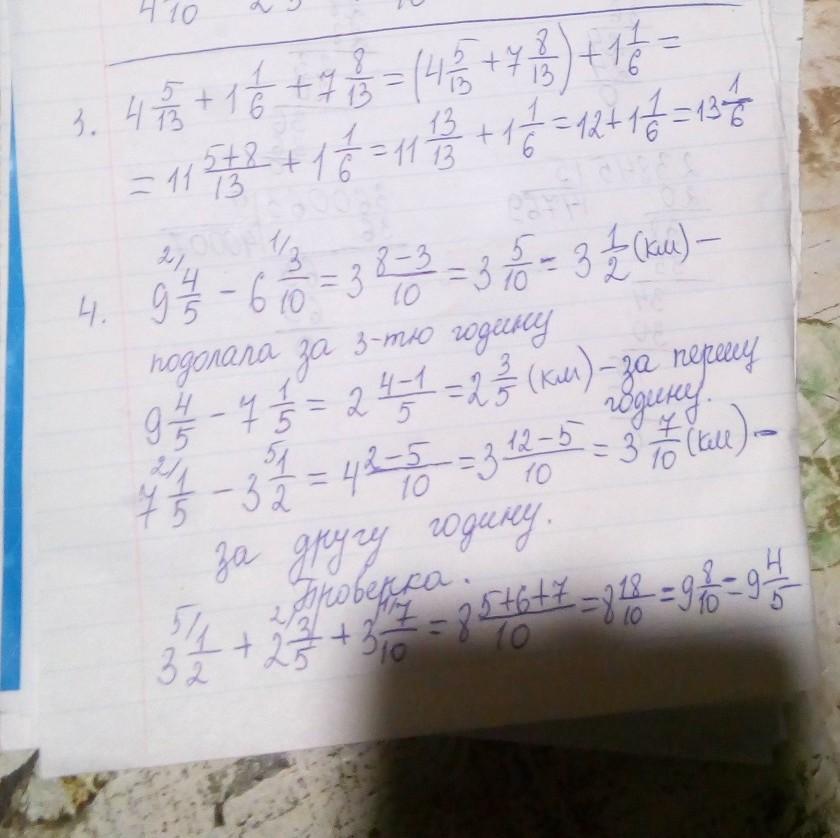 4 10 2 5 10
3. 4 5/13 + 1 1/6 + 7 8/13 = (4 5/13 + 7 8/13) + 1 1/6 =
= 11 (5+8)/13 + 1 1/6 = 11 13/13 + 1 1/6 = 12 + 1 1/6 = 13 1/6
4. 9 ²⁄4/5 − 6 ¹⁄3/10 = 3 (8−3)/10 = 3 5/10 = 3 1/2 (км) −
подолала за 3-тю годину
9 4/5 − 7 1/5 = 2 (4−1)/5 = 2 3/5 (км) − за першу
годину.
7 ²⁄1/5 − 3 ⁵⁄1/2 = 4 (2−5)/10 = 3 (12−5)/10 = 3 7/10 (км) −
за другу годину.
Проверка.
3 ⁵⁄1/2 + 2 ²⁄3/5 + 3 ¹⁄7/10 = 8 (5+6+7)/10 = 8 18/10 = 9 8/10 = 9 4/5